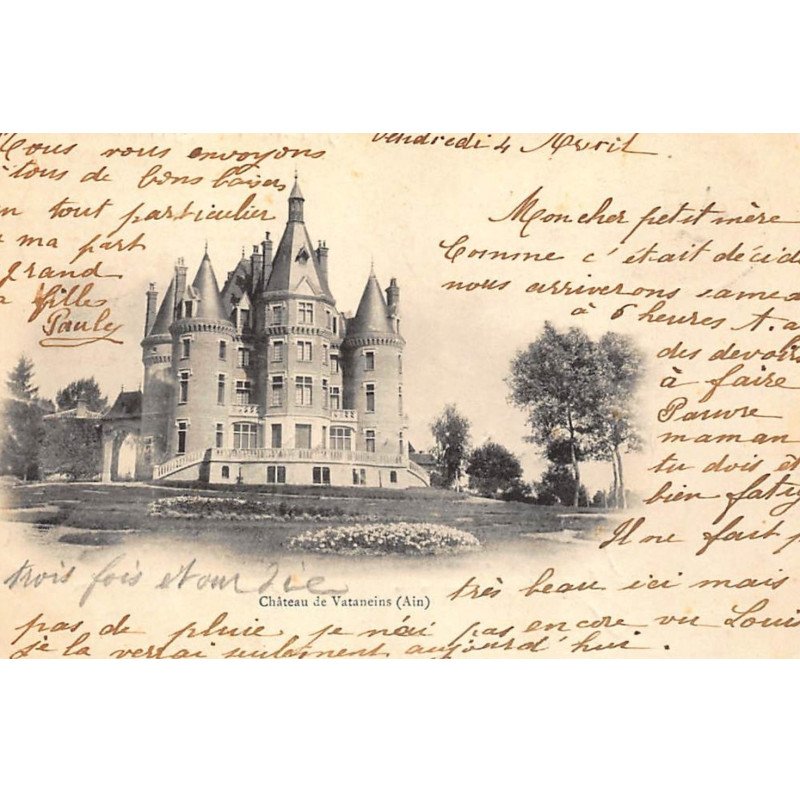 Vendredi 4 Avril
Mon cher petit mère
Comme c'était décid
nous arriverons samed
à 6 heures
des devoirs
à faire
Pauvre
maman
tu dois êt
bien fatig
Il ne fait p
très beau ici mais
pas de pluie, je n'ai pas encore vu Louis
je la verrai seulement aujourd'hui.
Nous vous envoyons
tous de bons baisers
n tout particulier
ma part
grand
filles
Pauly
trois fois
Château de Vataneins (Ain)